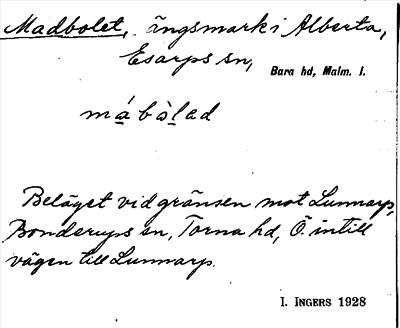 Madbolet, ängsmark i Alberta,
Esarps sn,
Bara hd, Malm. l.
má̱bòḻad
Beläget vid gränsen mot Lunnarp,
Bonderups sn, Torna hd, Ö. intill
vägen till Lunnarp.
I. INGERS 1928